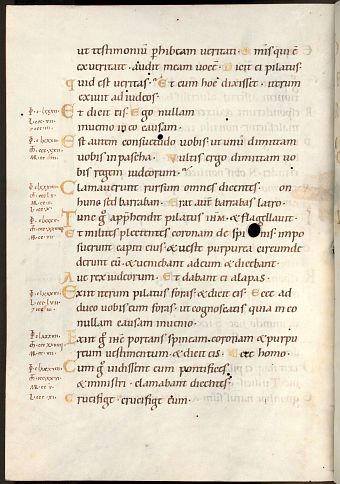 ut testimoniū phibeam ueritati. Omīs qui ē
ex ueritate. audit meam uocē. Dicit ei pilatus.
quid est ueritas. Et cum hoc dixisset. iterum
exiuit ad iudeos.
Et dicit eis. Ego nullam
inuenio in eo causam.
Est autem consuetudo uobis ut unū dimittam
uobis in pascha. Vultis ergo dimittam uo
bis regem iudeorum.
Clamauerunt rursum omnes dicentes. Non
hunc sed barraban. Erat autē barrabas latro.
Tunc g apphendit pilatus ihm. & flagellauit.
Et milites plectentes coronam de spinis impo
suerunt capiti eius & ueste purpurea circumde
derunt eū. & ueniebant ad eum & dicebant.
Aue rex iudeorum. Et dabant ei alapas.
Exiit iterum pilatus foras & dicit eis. Ecce ad
duco uobis eum foras. ut cognoscatis quia in eo
nullam causam inuenio.
Exiit g ihc portans spineam coronam & purpu
reum uestimentum. & dicit eis. Ecce homo.
Cum g uidissent eum pontifices
& ministri. clamabant dicentes.
Crucifige crucifige eum.